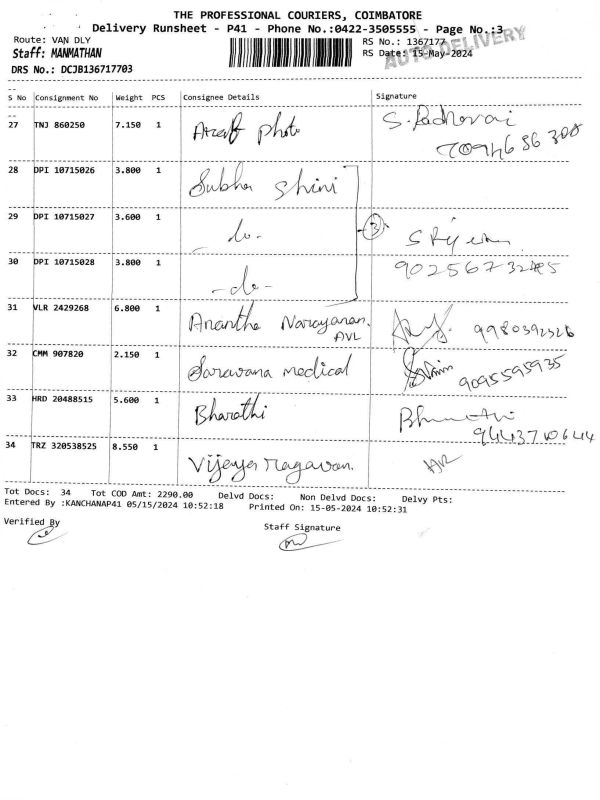 THE PROFESSIONAL COURIERS, COIMBATORE
Delivery Runsheet - P41 - Phone No.:0422-3505555 - Page No.:3
AUTO DELIVERY
Route: VAN DLY
RS No.: 1367177
Staff: MANMATHAN
RS Date: 15-May-2024
DRS No.: DCJB136717703
S No Consignment No Weight PCS Consignee Details Signature
27 TNJ 860250 7.150 1 Photo
28 DPI 10715026 3.800 1 Subha Shini
29 DPI 10715027 3.600 1 -do-
3
30 DPI 10715028 3.800 1 -do-
31 VLR 2429268 6.800 1 Anantha Narayanan. 9980392326
AVL
32 CMM 907820 2.150 1 Saravana medical 9095595935
33 HRD 20488515 5.600 1 Bharathi
9443710644
34 TRZ 320538525 8.550 1 Vijeya ragavan.
Tot Docs: 34 Tot COD Amt: 2290.00 Delvd Docs: Non Delvd Docs: Delvy Pts:
Entered By :KANCHANAP41 05/15/2024 10:52:18 Printed On: 15-05-2024 10:52:31
Verified By
Staff Signature